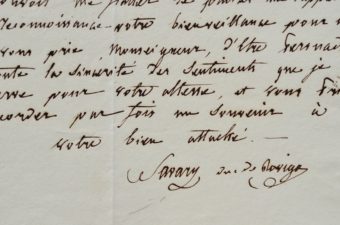 reconnaissance votre bienveillance pour
vous prie Monseigneur, d'être
la sincérité des sentiments que je
pour votre altesse, et vous
par fois un souvenir à
votre bien attaché. —
Savary duc de Rovigo